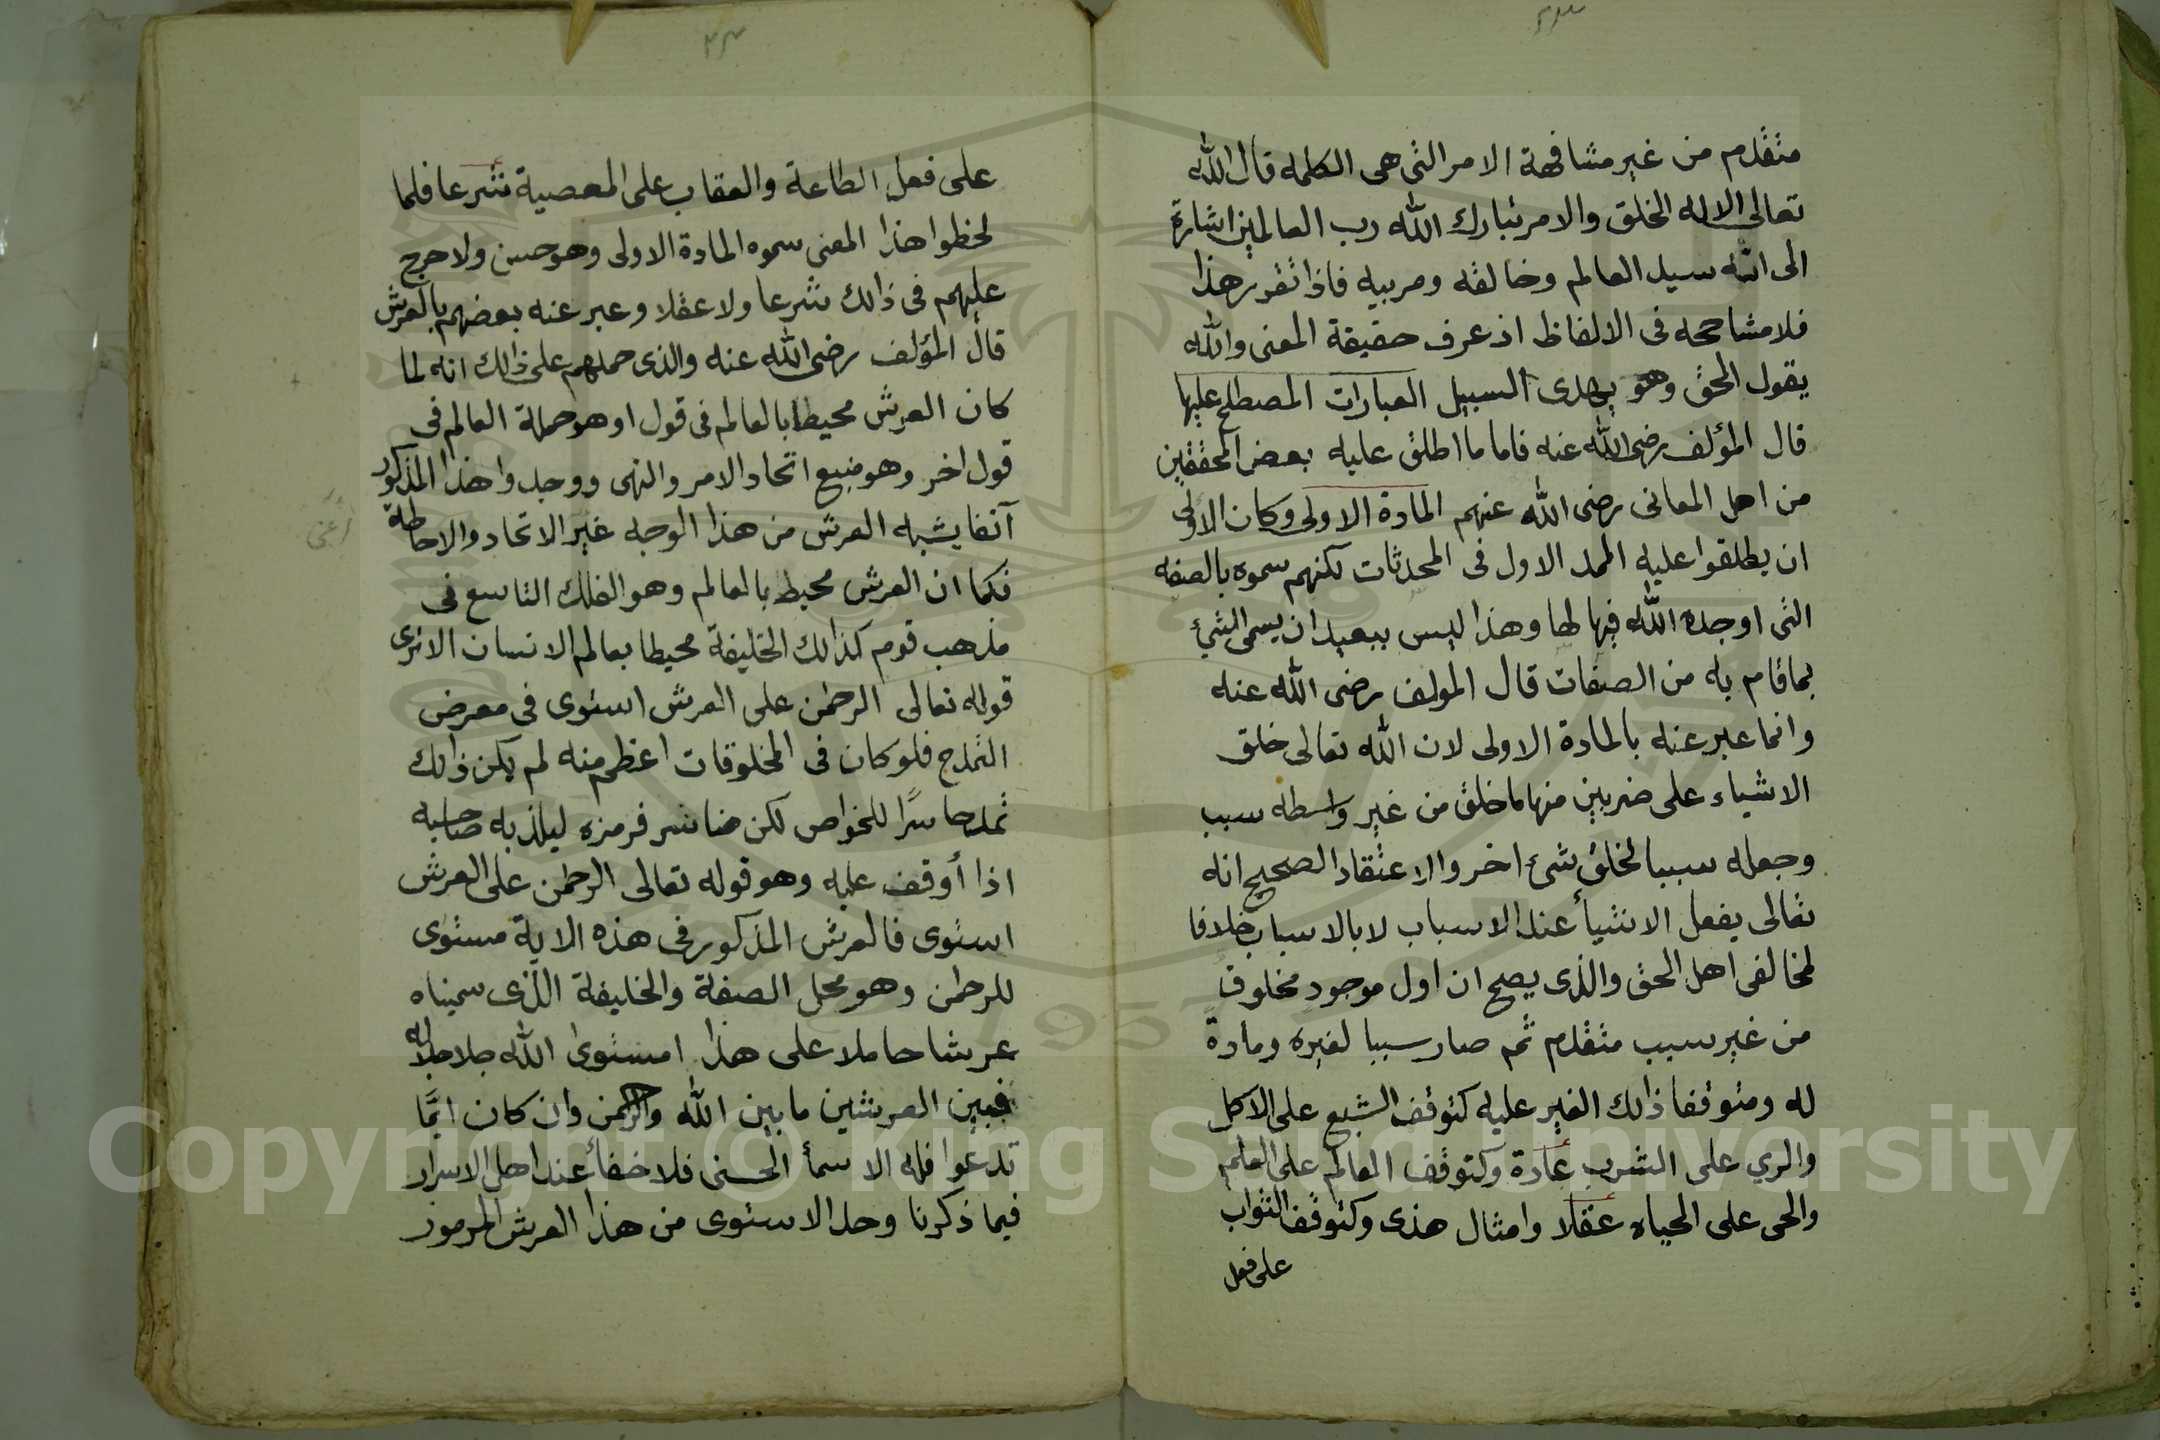 متقدم من غير مشافهة الامر التى هى الكلمه قال الله
تعالى الا له الخلق والامر تبارك الله رب العالمين اشارة
الى انه سيد العالم وخالقه ومربيه فاذا تقرر هذا
فلا مشاححه فى الالفاظ اذ عرف حقيقة المعنى والله
يقول الحق وهو يهدى السبيل العبارات المصطلح عليها
قال المؤلف رضى الله عنه فاما ما اطلق عليه بعض المحققين
من اهل المعانى رضى الله عنهم المادة الاولى وكان الاولى
ان يطلقوا عليه الممد الاول فى المحدثات لكنهم سموه بالصفه
التى اوجده الله فيها لها وهذا ليس ببعيد ان يسمى الشئ
بما قام به من الصفات قال المولف رضى الله عنه
وانما عبر عنه بالمادة الاولى لان الله تعالى خلق
الاشياء على ضربين منها ما خلق من غير واسطه سبب
وجعله سببا لخلق شئ اخر والاعتقاد الصحيح انه
تعالى يفعل الاشيأ عند الاسباب لا بالاسباب خلافا
لمخالفى اهل الحق والذى يصح ان اول موجود مخلوق
من غير سبب متقدم ثم صار سببا لغيره ومادة
له ومتوقفا ذالك الغير عليه كتوقف الشبع على الاكل
والري على الشرب عادة وكتوقف العالم على العلم
والحى على الحياه عقلا وامثال هذى وكتوقف الثواب
على فعل
على فعل الطاعة والعقاب على المعصية شرعا فلما
لحظوا هذا المعنى سموه المادة الاولى وهو حسن ولا حرج
عليهم فى ذالك شرعا ولا عقلا وعبر عنه بعضهم بالعرش
قال المؤلف رضى الله عنه والذى حملهم على ذالك انه لما
كان العرش محيطا بالعالم فى قول او هو جملة العالم فى
قول اخر وهو منبع اتحاد الامر والنهى ووجدوا هذا المذكور
آنفا يشبه العرش من هذا الوجه غير الاتحاد والاحاطة
فكما ان العرش محيط بالعالم وهو الفلك التاسع فى
مذهب قوم كذالك الخليفة محيطا بعالم الانسان الا ترى
قوله تعالى الرحمن على العرش استوى فى معرض
التمدح فلو كان فى المخلوقات اعظم منه لم يكن ذالك
تمدحا سرًا للخواص لكن هنا سر فرمزه ليلذ به صاحبه
اذا أوقف عليه وهو قوله تعالى الرحمن على العرش
استوى فالعرش المذكور فى هذه الاية مستوى
للرحمن وهو محل الصفة والخليفة الذى سميناه
عرشا حاملا على هذا استوى الله جلا جلاله
فبين العرشين ما بين الله والرحمن وان كان ايًّا مّا
تدعوا فله الاسمأ الحسنى فلا خفأ عند اهل الاسرار
فيما ذكرنا وحد الاستوى من هذا العرش المرموز